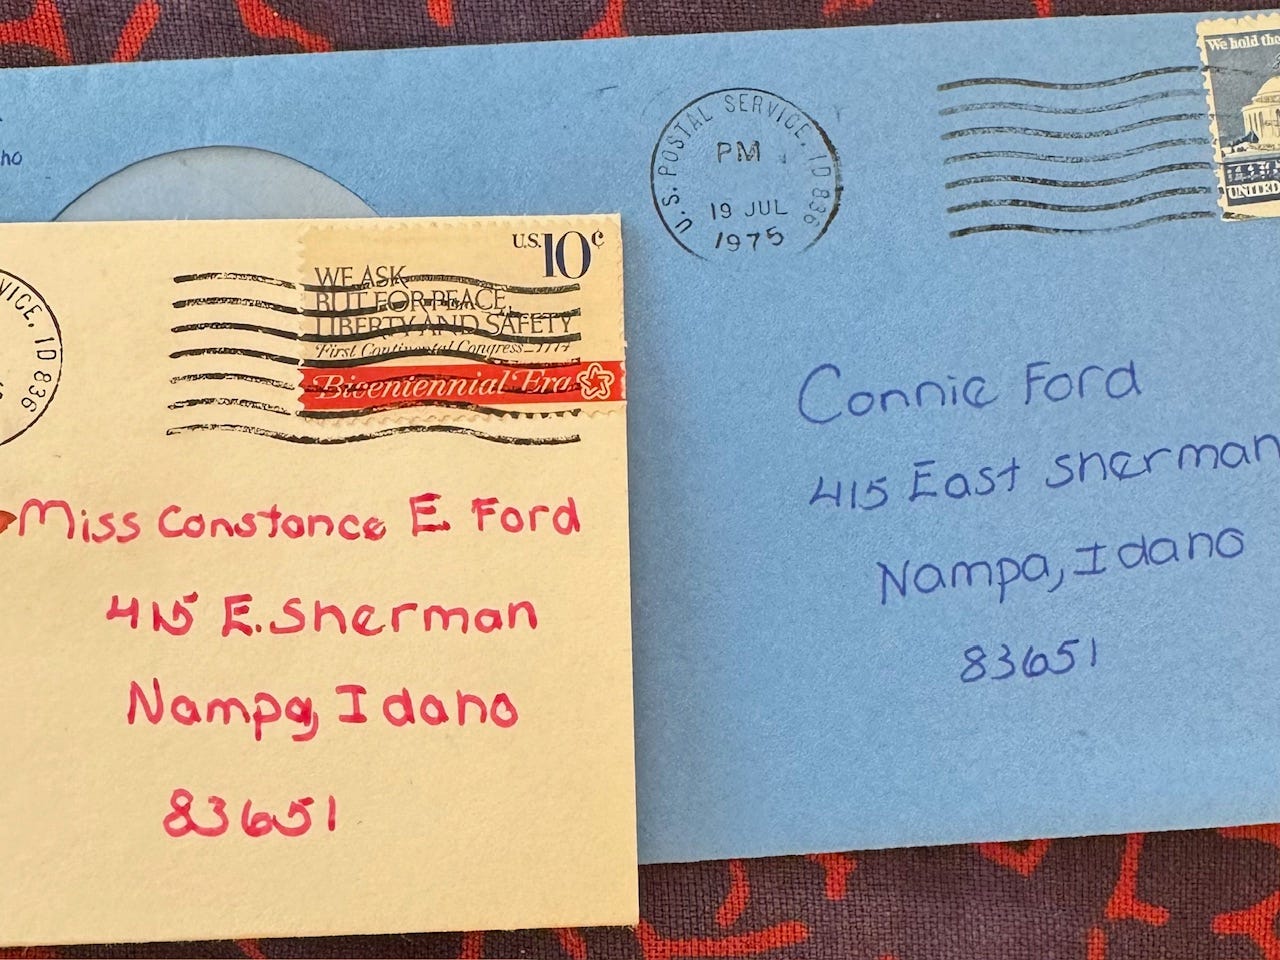 ho
U.S. POSTAL SERVICE, ID 836
PM
19 JUL
1975
We hold the
UNITED
VICE, ID 836
U.S. 10¢
WE ASK
BUT FOR PEACE,
LIBERTY AND SAFETY
First Continental Congress-1774
Bicentennial Era
Connie Ford
415 East Sherman
Nampa, Idaho
83651
Miss Constance E. Ford
415 E. Sherman
Nampa, Idaho
83651